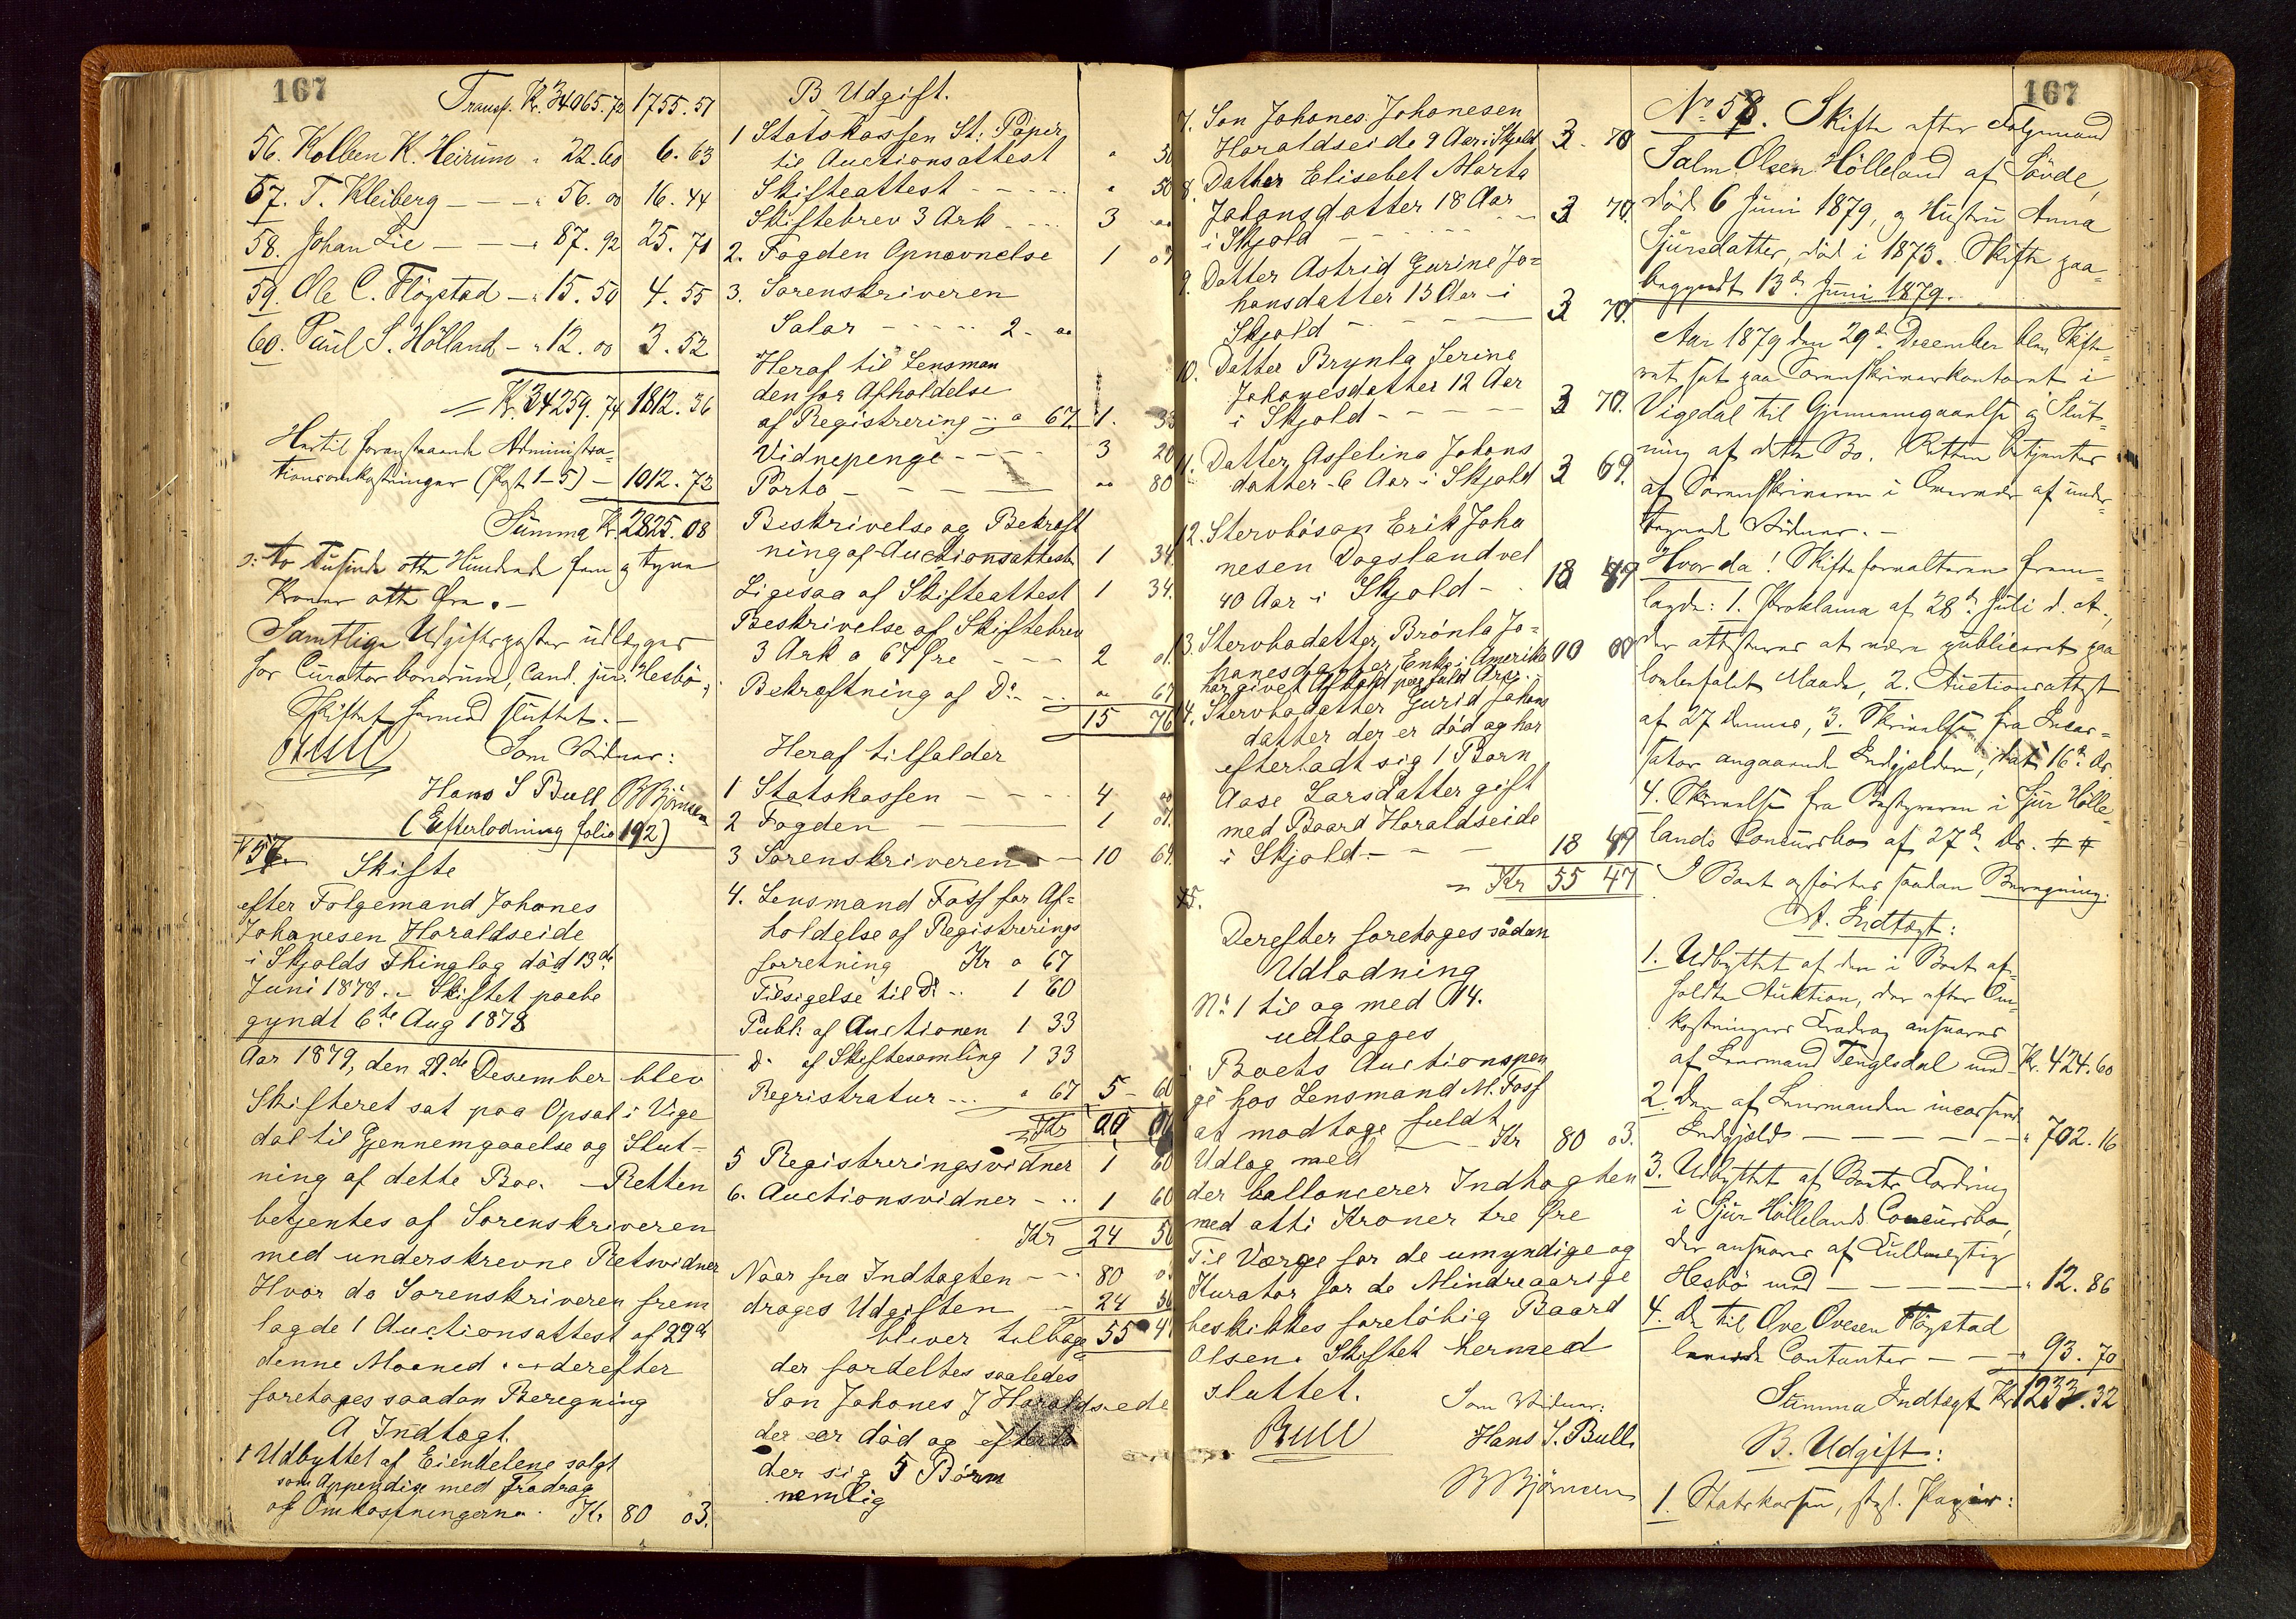 167
Transp. Kr. 34065.72 1755.51
56. Kolben K. Heirum " 22.60 6.63
57. T. Kleiberg - - - " 56.00 16.44
58. Johan Lie - - - " 87.92 25.71
59. Ole C. Fløgstad - " 15.50 4.55
60. Paul S. Hölland - " 12.00 3.52
= Kr. 34259.74 1812.36
Hertil foranstaaende Administra-
tionsomkostninger (Post 1-5) - 1012.72
Summa Kr. 2825.08
ɔ: to tusinde otte Hundrede fem og tyve
Kroner otte Øre. -
Samtlige Udgiftsposter udlægges
for Curator bonorum, Cand. jur. Hesbö,
Skiftet hermed sluttet. -
Bull Som Vidner:
Hans S Bull B Björnsen
(Efterlodning folio 192)
No 57. Skifte
efter Folgemand Johanes
Johanesen Haraldseide
i Skjolds Thinglag død 13de
Juni 1878. - Skiftet paabe
gyndt 6te Aug 1878
Aar 1879, den 29.de Desember blev
Skifteret sat paa Opsal i Vige
dal til Gjennemgaaelse og Slut-
ning af dette Boe. - Retten
betjentes af Sorenskriveren
med underskrevne Retsvidner
Hvor da Sorenskriveren frem
lagde 1 Auctionsattest af 29de
denne Maaned - derefter
foretages saadan Beregning
A Indtægt.
1 Udbyttet af Eiendelene solgt
som Appendix med Fradrag
af Omkostningerne. Kr 80 03.
B Udgift.
1 Statskassen St: Papir
til Auctionsattest " 50
Skifteattest - - - - - " 50
Skiftebrev 3 Ark - - - - 3 00
2. Fogden Opnævnelse 1 07
3. Sorenskriveren
Salar - - - - - 2.00
Heraf til Lensman
den for Afholdelse
af Registrering - " 67 1. 33
Vidnepenge - - - - 3 20
Porto - - - - - 00 80
Beskrivelse og Bekræft
ning af Auctionsattesten 1 34
Ligesaa af Skifteattest 1 34.
Beskrivelse af Skiftebrev
3 Ark a 67 Øre - - - 2 01.
Bekræftning af Do - - 00 67
15 76
Heraf tilfalder
1 Statskassen - - - - 4 00
2 Fogden - - - 1 07.
3 Sorenskriveren - - 10 69.
4. Lensmand Foss for Af-
holdelse af Registrerings
forretning Kr 0 67
Tilsigelse til Do - 1 60
Publ: af Auctionen 1 33
Do af Skiftesamling 1 33
Regristratur - - - 0 67 5 - 60
5 Registreringsvidner 1 60
6. Auctionsvidner - - 1 60
Kr 24 56
Naar fra Indtagten - - 80 03
drages Udgiften - 24 56
bliver tilbage 55 47
der fordeltes saaledes
Søn Johanes J Haraldseide
der er död og efterla
der sig 5 Börn
nemlig
167
7. Søn Johanes Johanesen
Haraldseide 9 Aar i Skjold 3 - 70
8. Datter Elisebet Marta
Johansdatter 18 Aar
i Skjold - - - - - 3 70.
9. Datter Astrid Gurine Jo-
hansdatter 13 Aar - i
Skjold - - - - 3 70.
10. Datter Brynla Serine
Johanesdatter 12 Aar
i Skjold - - - - - 3 70.
11. Datter Asseline Johans
datter - 6 Aar i Skjold 3 69.
12. Stervbösøn Erik Joha
nesen Dagsland vel
40 Aar i Skjold - - 18 49
13. Stervbodatter Brönla Jo-
hanesdatter Enke i Amerika 00 00
har givet Afkald paa fuld Arv.
14. Stervbodatter Gurid Johans
datter der er död og har
efterladt sig 1 Barn
Aase Larsdatter gift
med Baard Haraldseide
i Skjold - - - 18 49
= Kr 55 47
Derefter foretages sådan
Udlodning
No 1 til og med 14.
udlægges
i Boets Auctionspen
ge hos Lensmand M. Foss
at modtage fuldt
Udlog med - Kr 80 03.
der ballancerer Indtagten
med otti Kroner tre Øre
Til Værge for de umyndige og
Kurator for de Mindreaarige
beskikkes foreløbig Baard
Olsen. Skiftet hermed
sluttet.
Som Vidner:
Bull Hans S. Bull.
B Björnsen
No 58. Skifte efter Folgemand
Salm. Olsen Hölleland af Sövde,
död 6 Juni 1879, og Hustru Anna
Sjursdatter, död i 1873. Skifte paa-
begyndt 13de Juni 1879.
Aar 1879 den 29de December blev Skifte-
ret sat paa Sorenskriverkontoret i
Vigedal til Gjennemgaaelse og Slut-
ning af dette Bo. Retten betjentes
af Sorenskriveren i Overvær af under-
tegnede Vidner. -
Hvor da! Skifteforvalteren frem-
lagde: 1. Proklama af 28de Juli d. A.,
der attesteres at være publiceret paa
lovbefalet Maade, 2. Auctionsattest
af 27 dennes, 3. Skrivelse fra Incas-
sator angaaende Indgjelden, dat. 16de Ds.
4. Skrivelse fra Bestyreren i Sjur Hölle-
lands Concursbo af 27de Ds.
I Boet opförtes saadan Beregning:
A. Indtægt:
1. Udbyttet af den i Boet af-
holdte Auktion, der efter Om-
kostningers Fradrag ansvares
af Lensmand Tengesdal med Kr. 424.60
2. Den af Lensmanden incasserede
Indgjeld - - - - - - " 702.16
3. Udbyttet af Boets Fordring
i Sjur Höllelands Concursbo,
der ansvares af Fuldmegtig
Hesbö med - - - - - " 12.86
4. De til Ove Ovesen Fløgstad
Contanter - - - " 93.70
Summa Indtægt Kr. 1233.32
B. Udgift:
1. Statskassen, stpl. Papir: